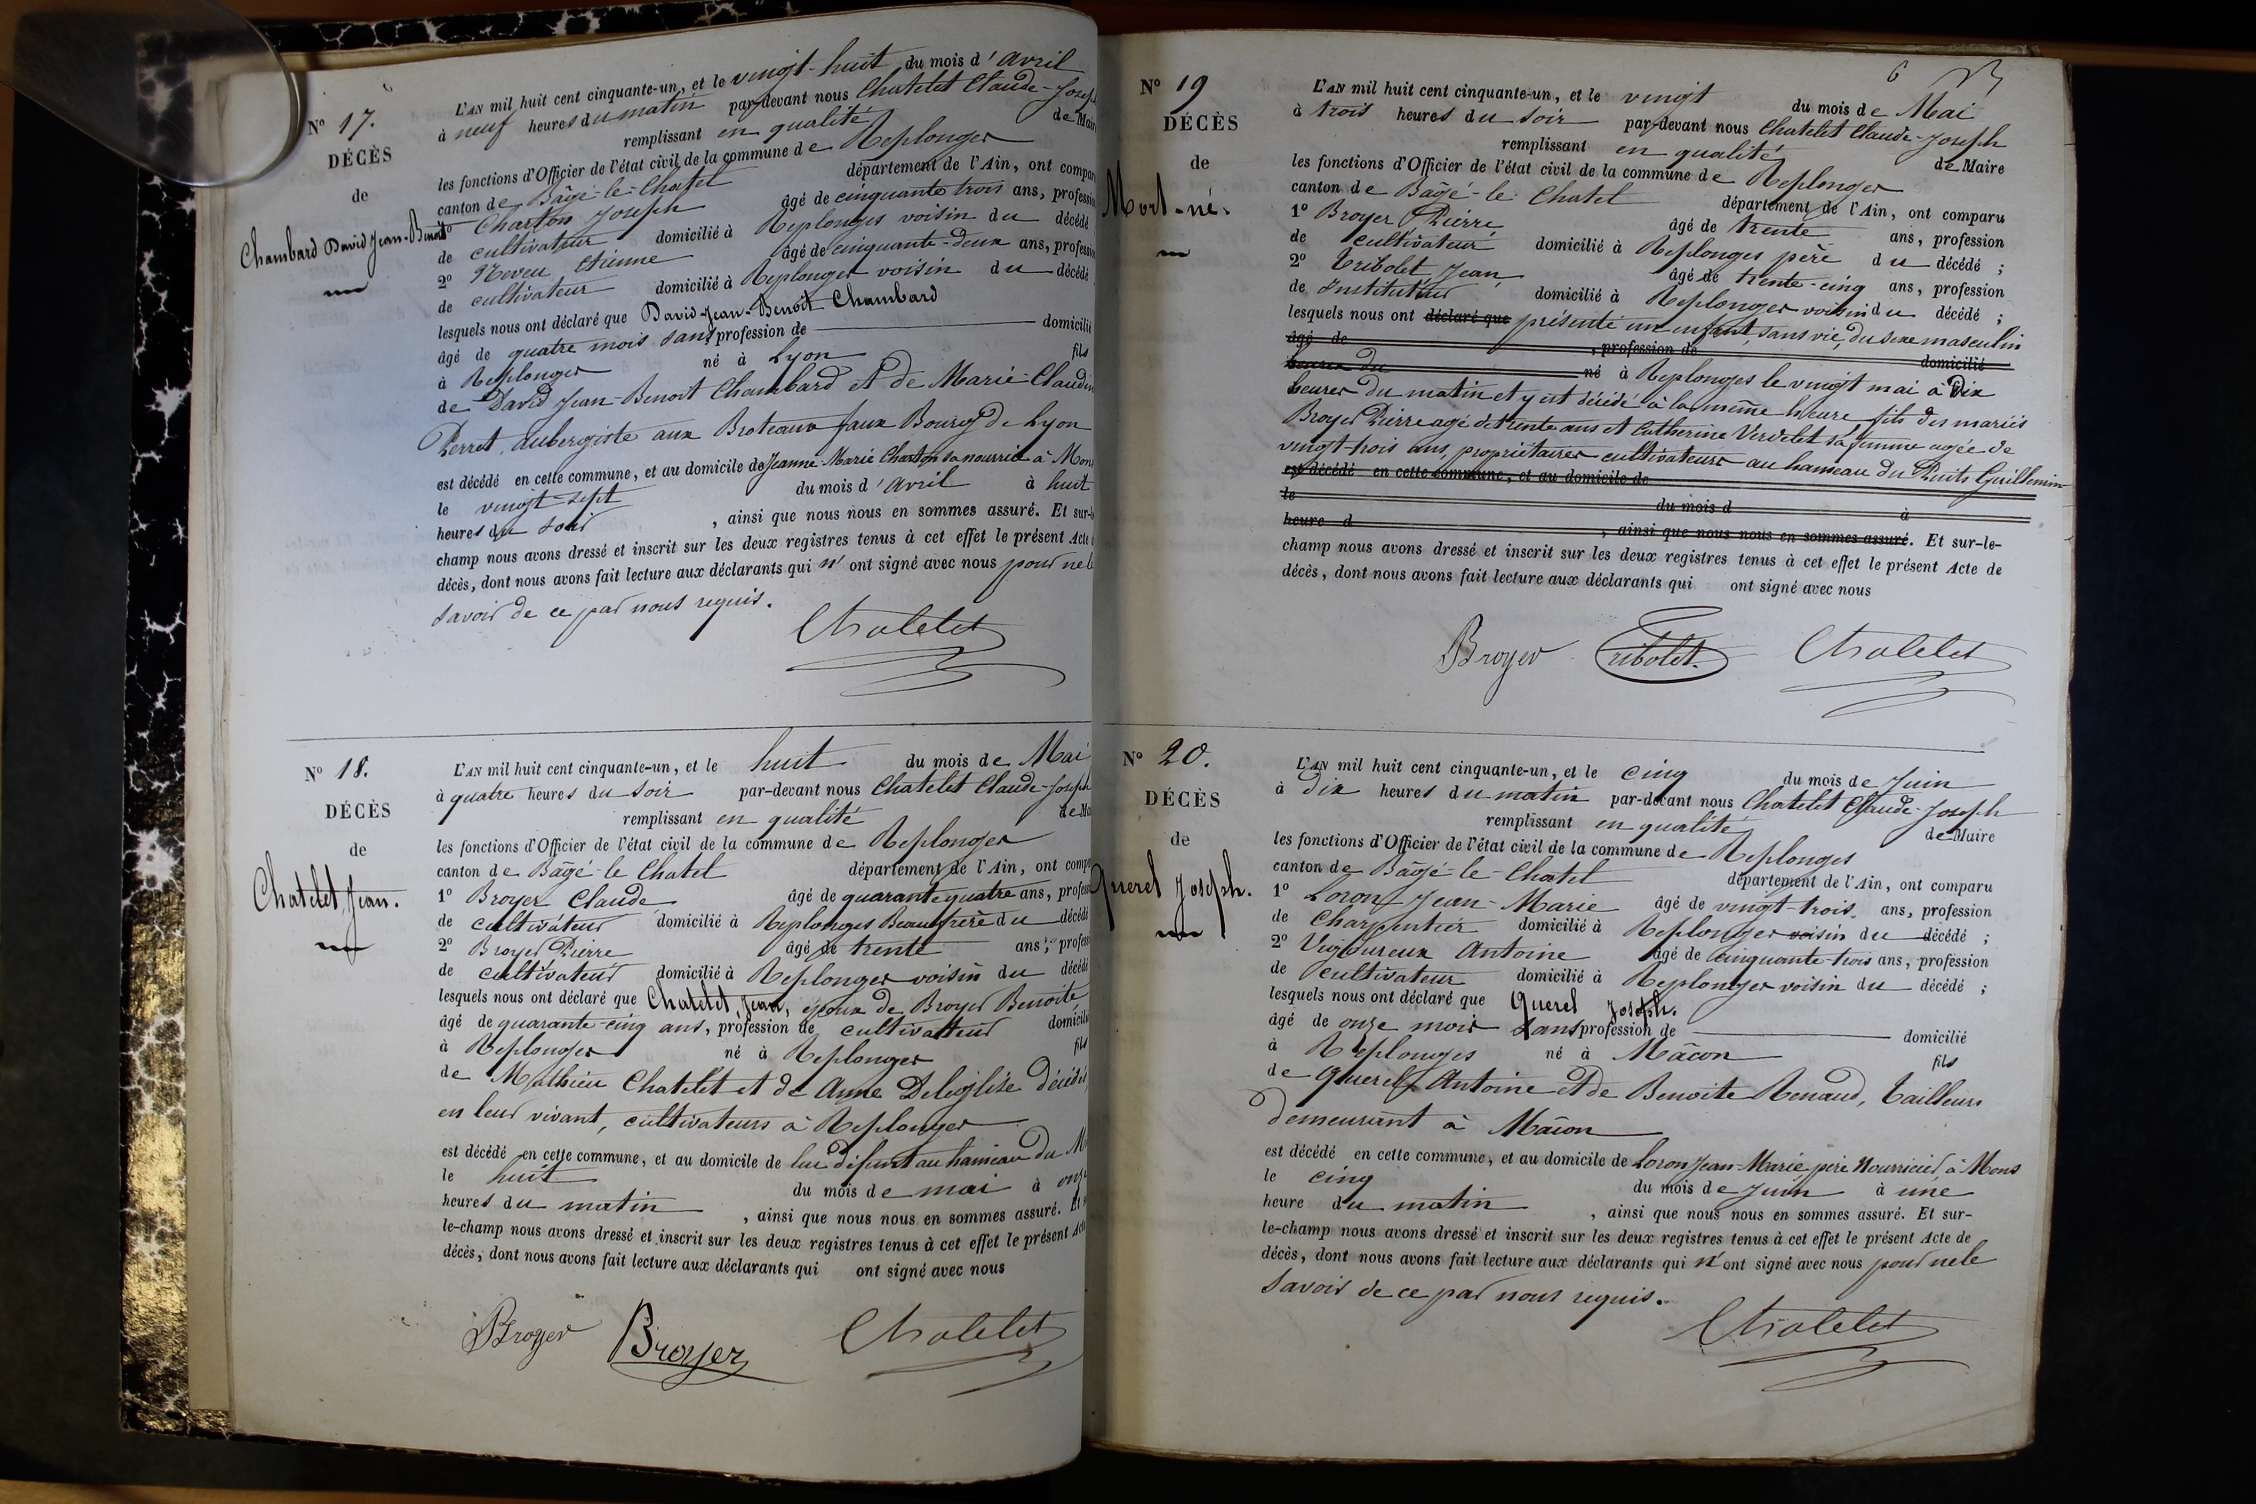 Nº 17.
DÉCÈS
de
Chambard David Jean-Benoit
L'AN mil huit cent cinquante-un, et le vingt-huit du mois d'avril
à neuf heures du matin par-devant nous Chatelet Claude-Joseph
de Maire
remplissant en qualité
les fonctions d'Officier de l'état civil de la commune de Replonges
canton de Bâgé-le-Chatel département de l'Ain, ont compar
1º Charton Joseph âgé de cinquante trois ans, profession
de cultivateur domicilié à Replonges voisin du décédé
2º Neveu Etienne âgé de cinquante-deux ans, profession
de cultivateur domicilié à Replonges voisin du décédé
lesquels nous ont déclaré que David-Jean-Benoit Chambard
âgé de quatre mois sans profession de domicilié
à Replonges né à Lyon fils
de David Jean-Benoit Chambard et de Marie-Claudin
Perret, aubergiste aux Broteaux faux Bourg de Lyon
est décédé en cette commune, et au domicile de Jeanne-Marie Charton sa nourrice à Mons
le vingt sept du mois d'avril à huit
heures du soir , ainsi que nous nous en sommes assuré. Et sur-le
champ nous avons dressé et inscrit sur les deux registres tenus à cet effet le présent Acte
décès, dont nous avons fait lecture aux déclarants qui n'ont signé avec nous pour ne le
savoir de ce par nous requis.
Chatelet
Nº 18.
DÉCÈS
de
Chatelet, Jean.
L'AN mil huit cent cinquante-un, et le huit du mois de Mai
à quatre heures du soir par-devant nous Chatelet Claude-Joseph
remplissant en qualité de Ma
les fonctions d'Officier de l'état civil de la commune de Replonges
canton de Bâgé-le Chatel département de l'Ain, ont compa
1º Broyer Claude âgé de quarante quatre ans, profess
de cultivateur domicilié à Replonges Beaufrère du décédé
2º Broyer Pierre âgé de trente ans, profess
de cultivateur domicilié à Replonges voisin du décédé
lesquels nous ont déclaré que Chatelet, Jean, époux de Broyer Benoite
âgé de quarante-cinq ans, profession de cultivateur domicilié
à Replonges né à Replonges fils
de Mathieu Chatelet et de Anne Deléglise décédés
en leur vivant, cultivateurs à Replonges
est décédé en cette commune, et au domicile de lui défunt au hameau du M
le huit du mois de mai à onze
heures du matin , ainsi que nous nous en sommes assuré. Et s
le-champ nous avons dressé et inscrit sur les deux registres tenus à cet effet le présent Acte
décès, dont nous avons fait lecture aux déclarants qui ont signé avec nous
Broyer Broyer Chatelet
6
Nº 19
DÉCÈS
de
Mort-né.
L'AN mil huit cent cinquante-un, et le vingt du mois de Mai
à trois heures du soir par-devant nous Chatelet Claude-Joseph
remplissant en qualité de Maire
les fonctions d'Officier de l'état civil de la commune de Replonges
canton de Bâgé-le Chatel département de l'Ain, ont comparu
1º Broyer Pierre âgé de trente ans, profession
de cultivateur domicilié à Replonges père du décédé ;
2º Tribolet Jean âgé de trente-cinq ans, profession
de Instituteur domicilié à Replonges voisin du décédé ;
lesquels nous ont déclaré que présenté un enfant, sans vie, du sexe masculin
âgé de , profession de domicilié
heures du né à Replonges le vingt mai à dix
heures du matin et y est décédé à la même heure fils des mariés
Broyer Pierre agé de trente ans et Catherine Verdelet sa femme agée de
vingt-trois ans, propriétaires cultivateurs au hameau du Puits Guillemin
est décédé en cette commune, et au domicile de
le du mois d à
heure d , ainsi que nous nous en sommes assuré. Et sur-le-
champ nous avons dressé et inscrit sur les deux registres tenus à cet effet le présent Acte de
décès, dont nous avons fait lecture aux déclarants qui ont signé avec nous
Broyer Tribolet. Chatelet
Nº 20.
DÉCÈS
de
Querel Joseph.
L'AN mil huit cent cinquante-un, et le cinq du mois de Juin
à dix heures du matin par-devant nous Chatelet Claude-Joseph
remplissant en qualité de Maire
les fonctions d'Officier de l'état civil de la commune de Replonges
canton de Bâgé-le-Chatel département de l'Ain, ont comparu
1º Loron Jean-Marie âgé de vingt-trois ans, profession
de charpentier domicilié à Replonges voisin du décédé ;
2º Vigoureux Antoine âgé de cinquante-trois ans, profession
de cultivateur domicilié à Replonges voisin du décédé ;
lesquels nous ont déclaré que Querel Joseph.
âgé de onze mois sans profession de domicilié
à Replonges né à Mâcon fils
de Querel Antoine et de Benoite Renaud, tailleurs
demeurant à Mâcon
est décédé en cette commune, et au domicile de Loron Jean-Marie père Nourricier à Mons
le cinq du mois de Juin à une
heure du matin , ainsi que nous nous en sommes assuré. Et sur-
le-champ nous avons dressé et inscrit sur les deux registres tenus à cet effet le présent Acte de
décès, dont nous avons fait lecture aux déclarants qui n'ont signé avec nous pour ne le
savoir de ce par nous requis.
Chatelet